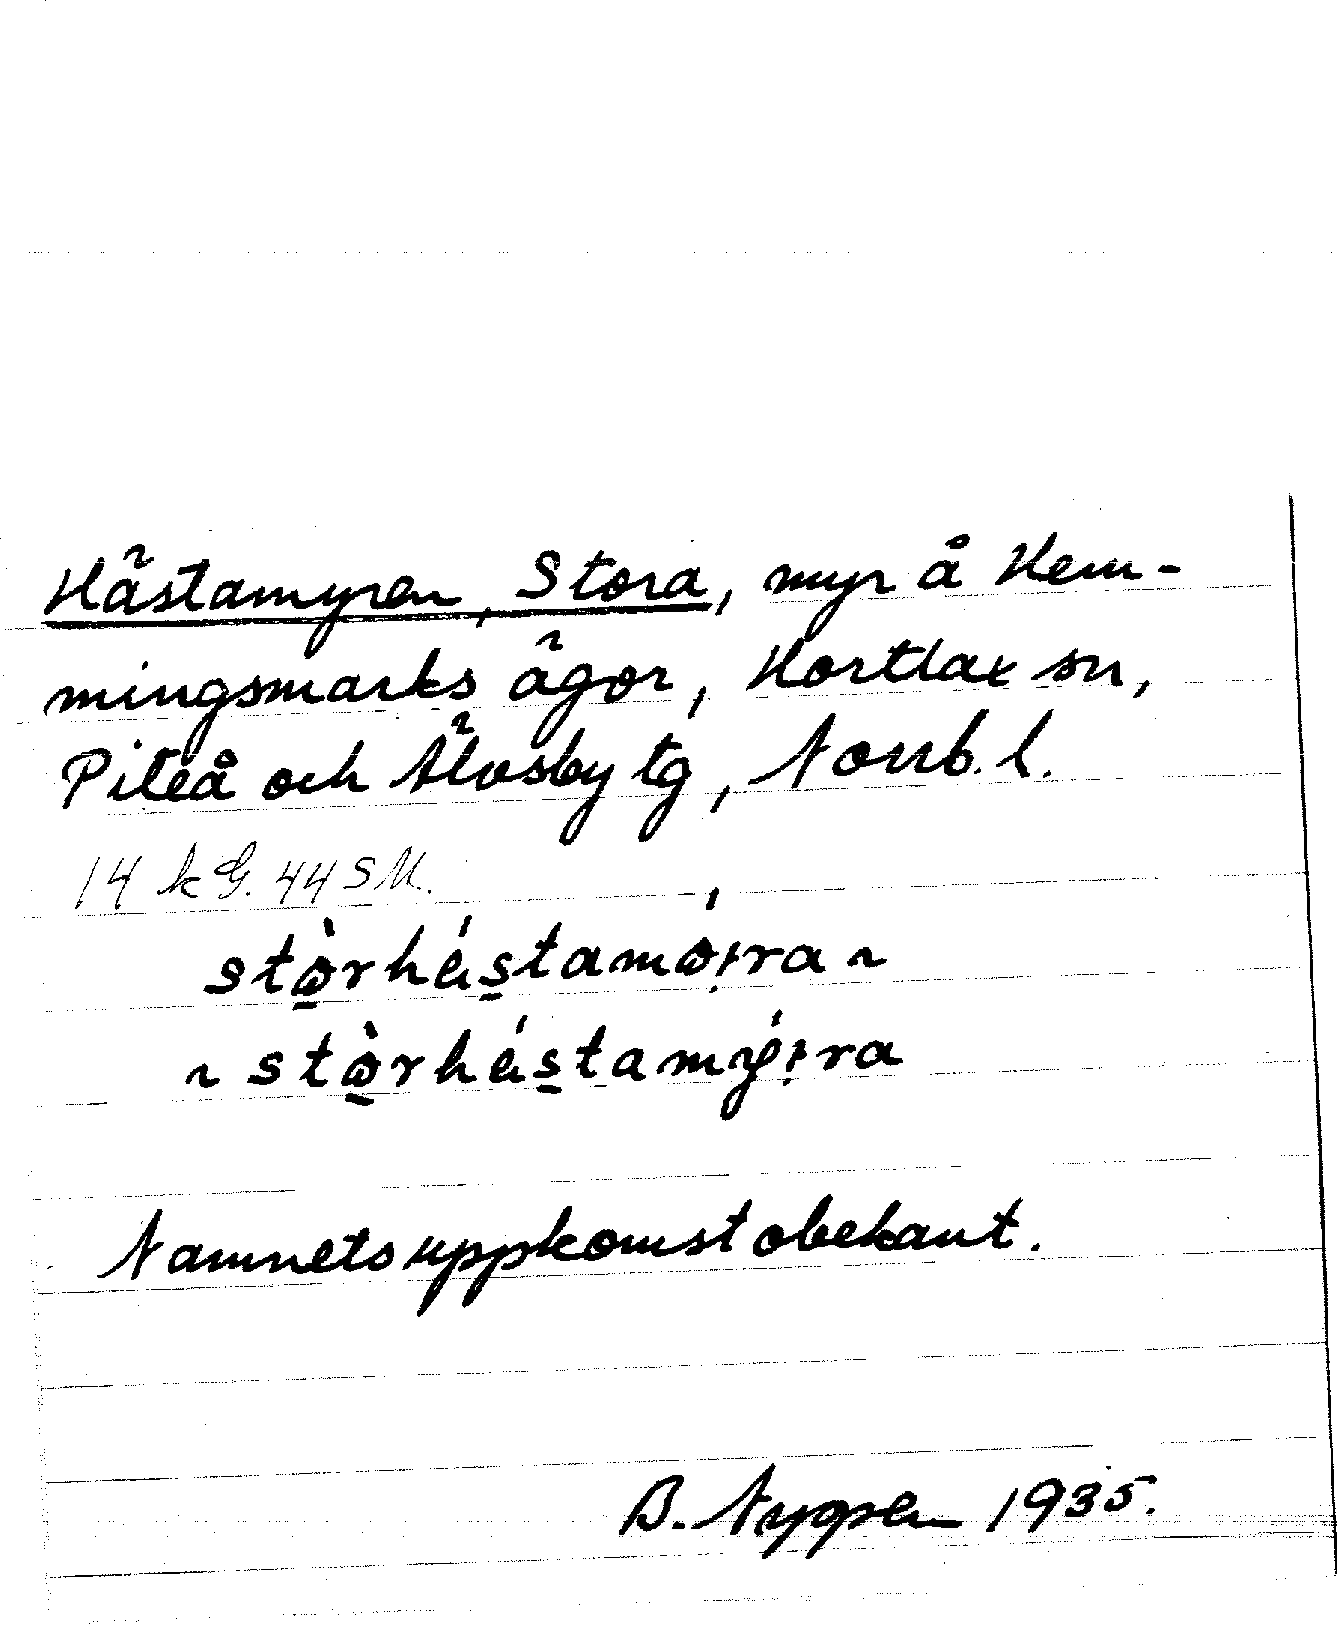 Hästamyren, Stora, myr å Hem-
mingsmarks ägor, Hortlax sn,
Piteå och Älvsby tg, Norrb. l.
14 k G. 44 SM.
stòrhástamø̀ra ~
~ stòrhástamýra
Namnets uppkomst obekant.
B. Nygren 1935.